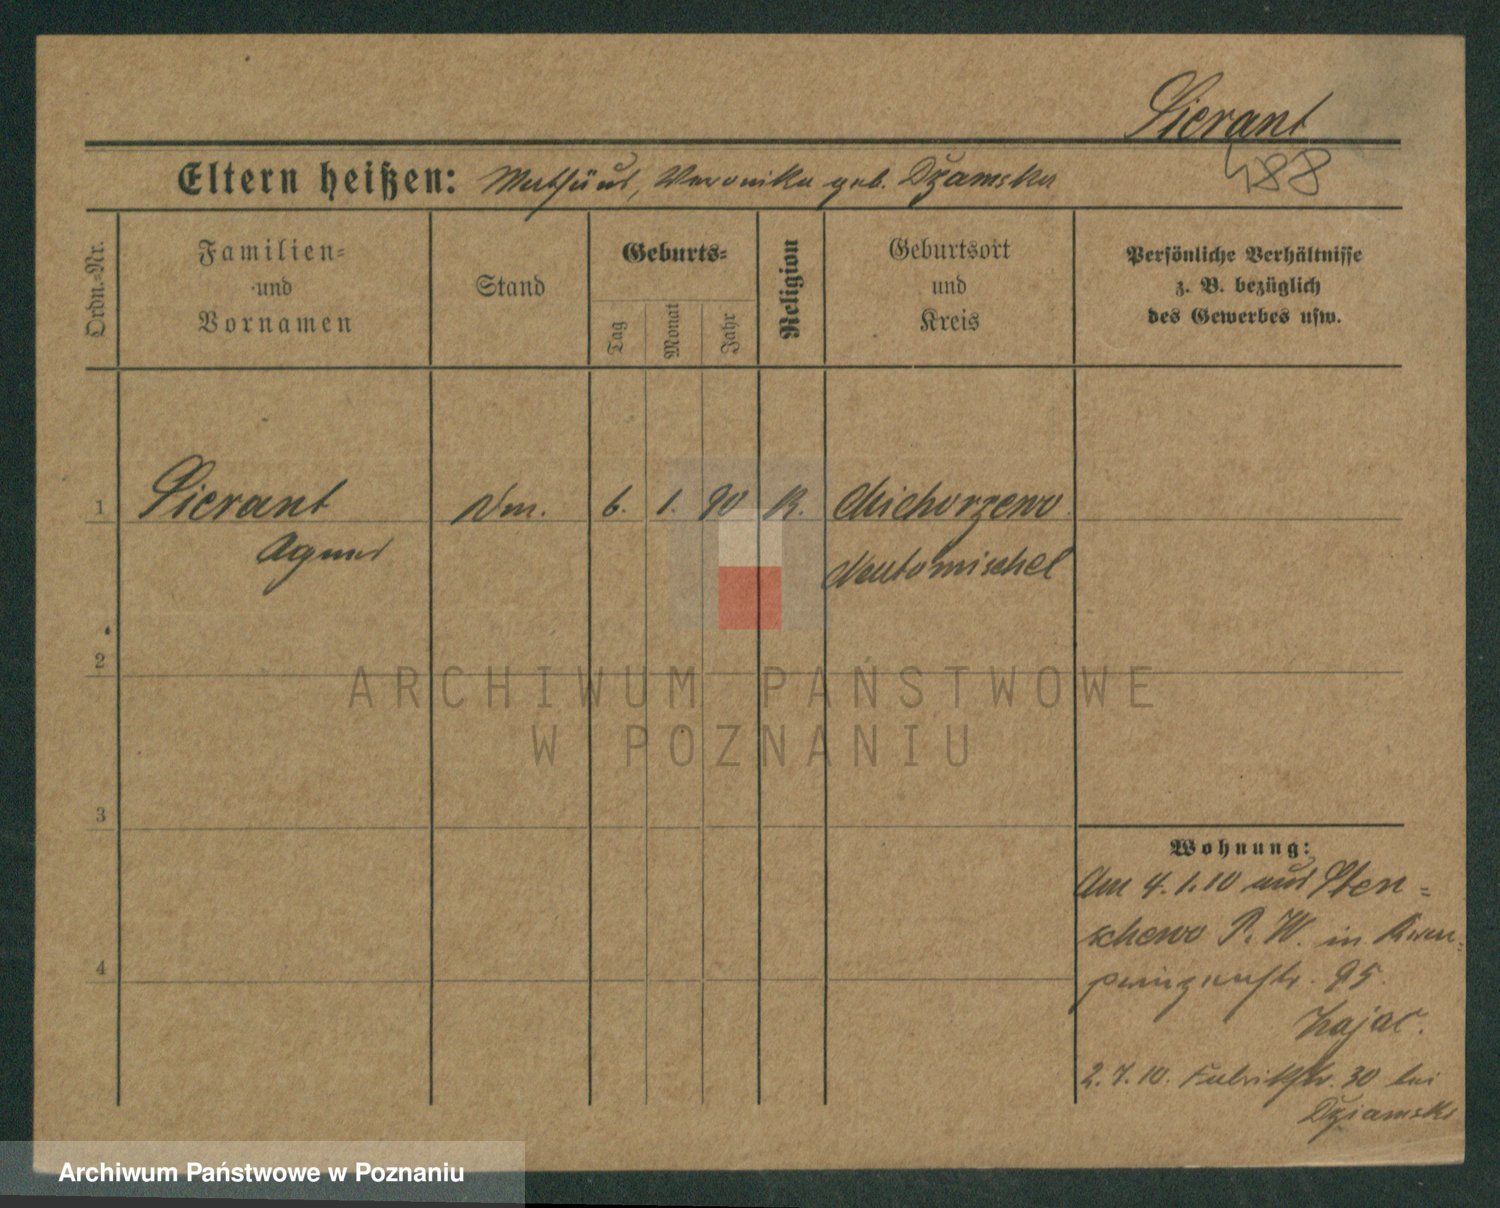 Sierant
488
Eltern heißen: Mathäus, Veronika geb. Dzamska
Ordn.-Nr.
Familien-
und
Vornamen
Stand
Geburts-
Tag
Monat
Jahr
Religion
Geburtsort
und
Kreis
Persönliche Verhältnisse
z. B. bezüglich
des Gewerbes usw.
1 Sierant 6. 1. 90 K. Michorzewo
Agnes Neutomischel
2
ARCHIWUM PAŃSTWOWE
W POZNANIU
3
4
Wohnung:
Am 4.1.10 aus Sten=
schewo P. W. in
95.
Zajac.
2.7.10. Fabrikstr. 30 bei
Dziamski
Archiwum Państwowe w Poznaniu